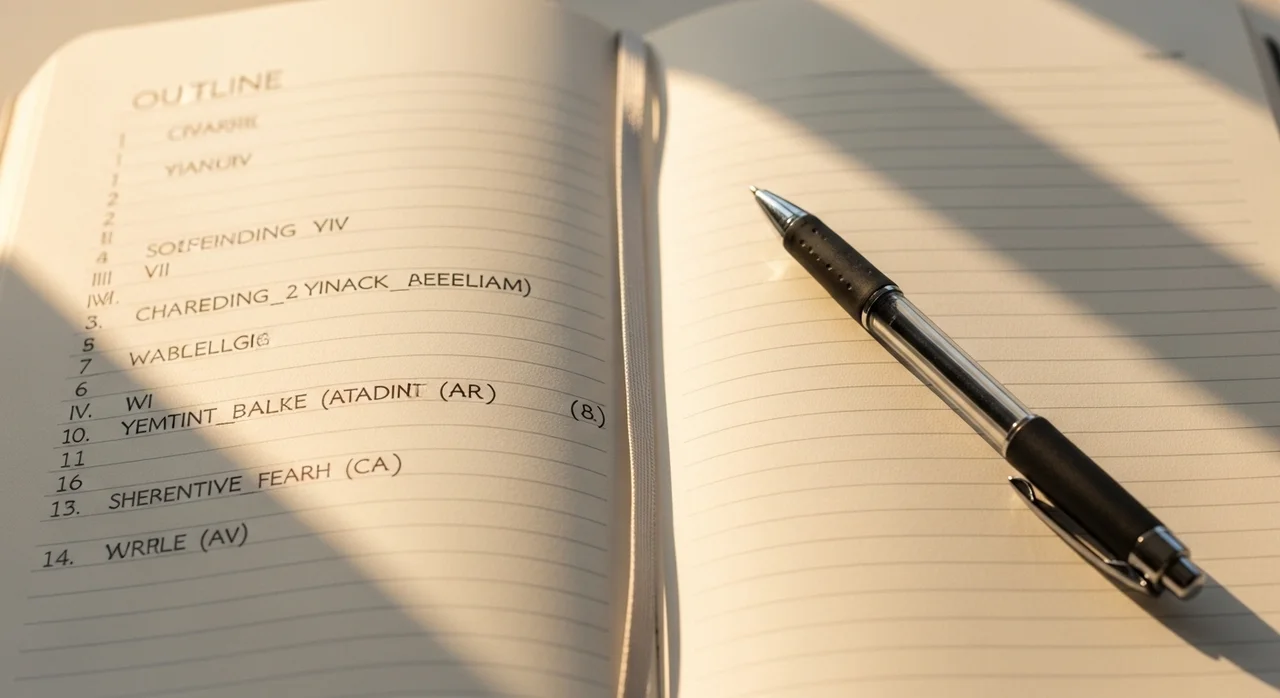 OUTLINE
1
YIANUIV
1
2
2
4 SOEFEINDING YIV
IIII VII
IWI.
3. CHAREDING_2 YINACK_AEEELIAM)
5
7 WABLELLGIG
6
IV. WI
10. YEMTINT_BALKE (ATADINT (AR) (8.)
11
16
13. SHERENTIVE_FEARH (CA)
14. WRRLE (AV)